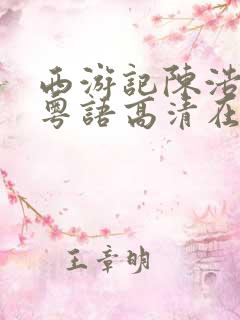 西游記陳浩
粵語高清在
王章明